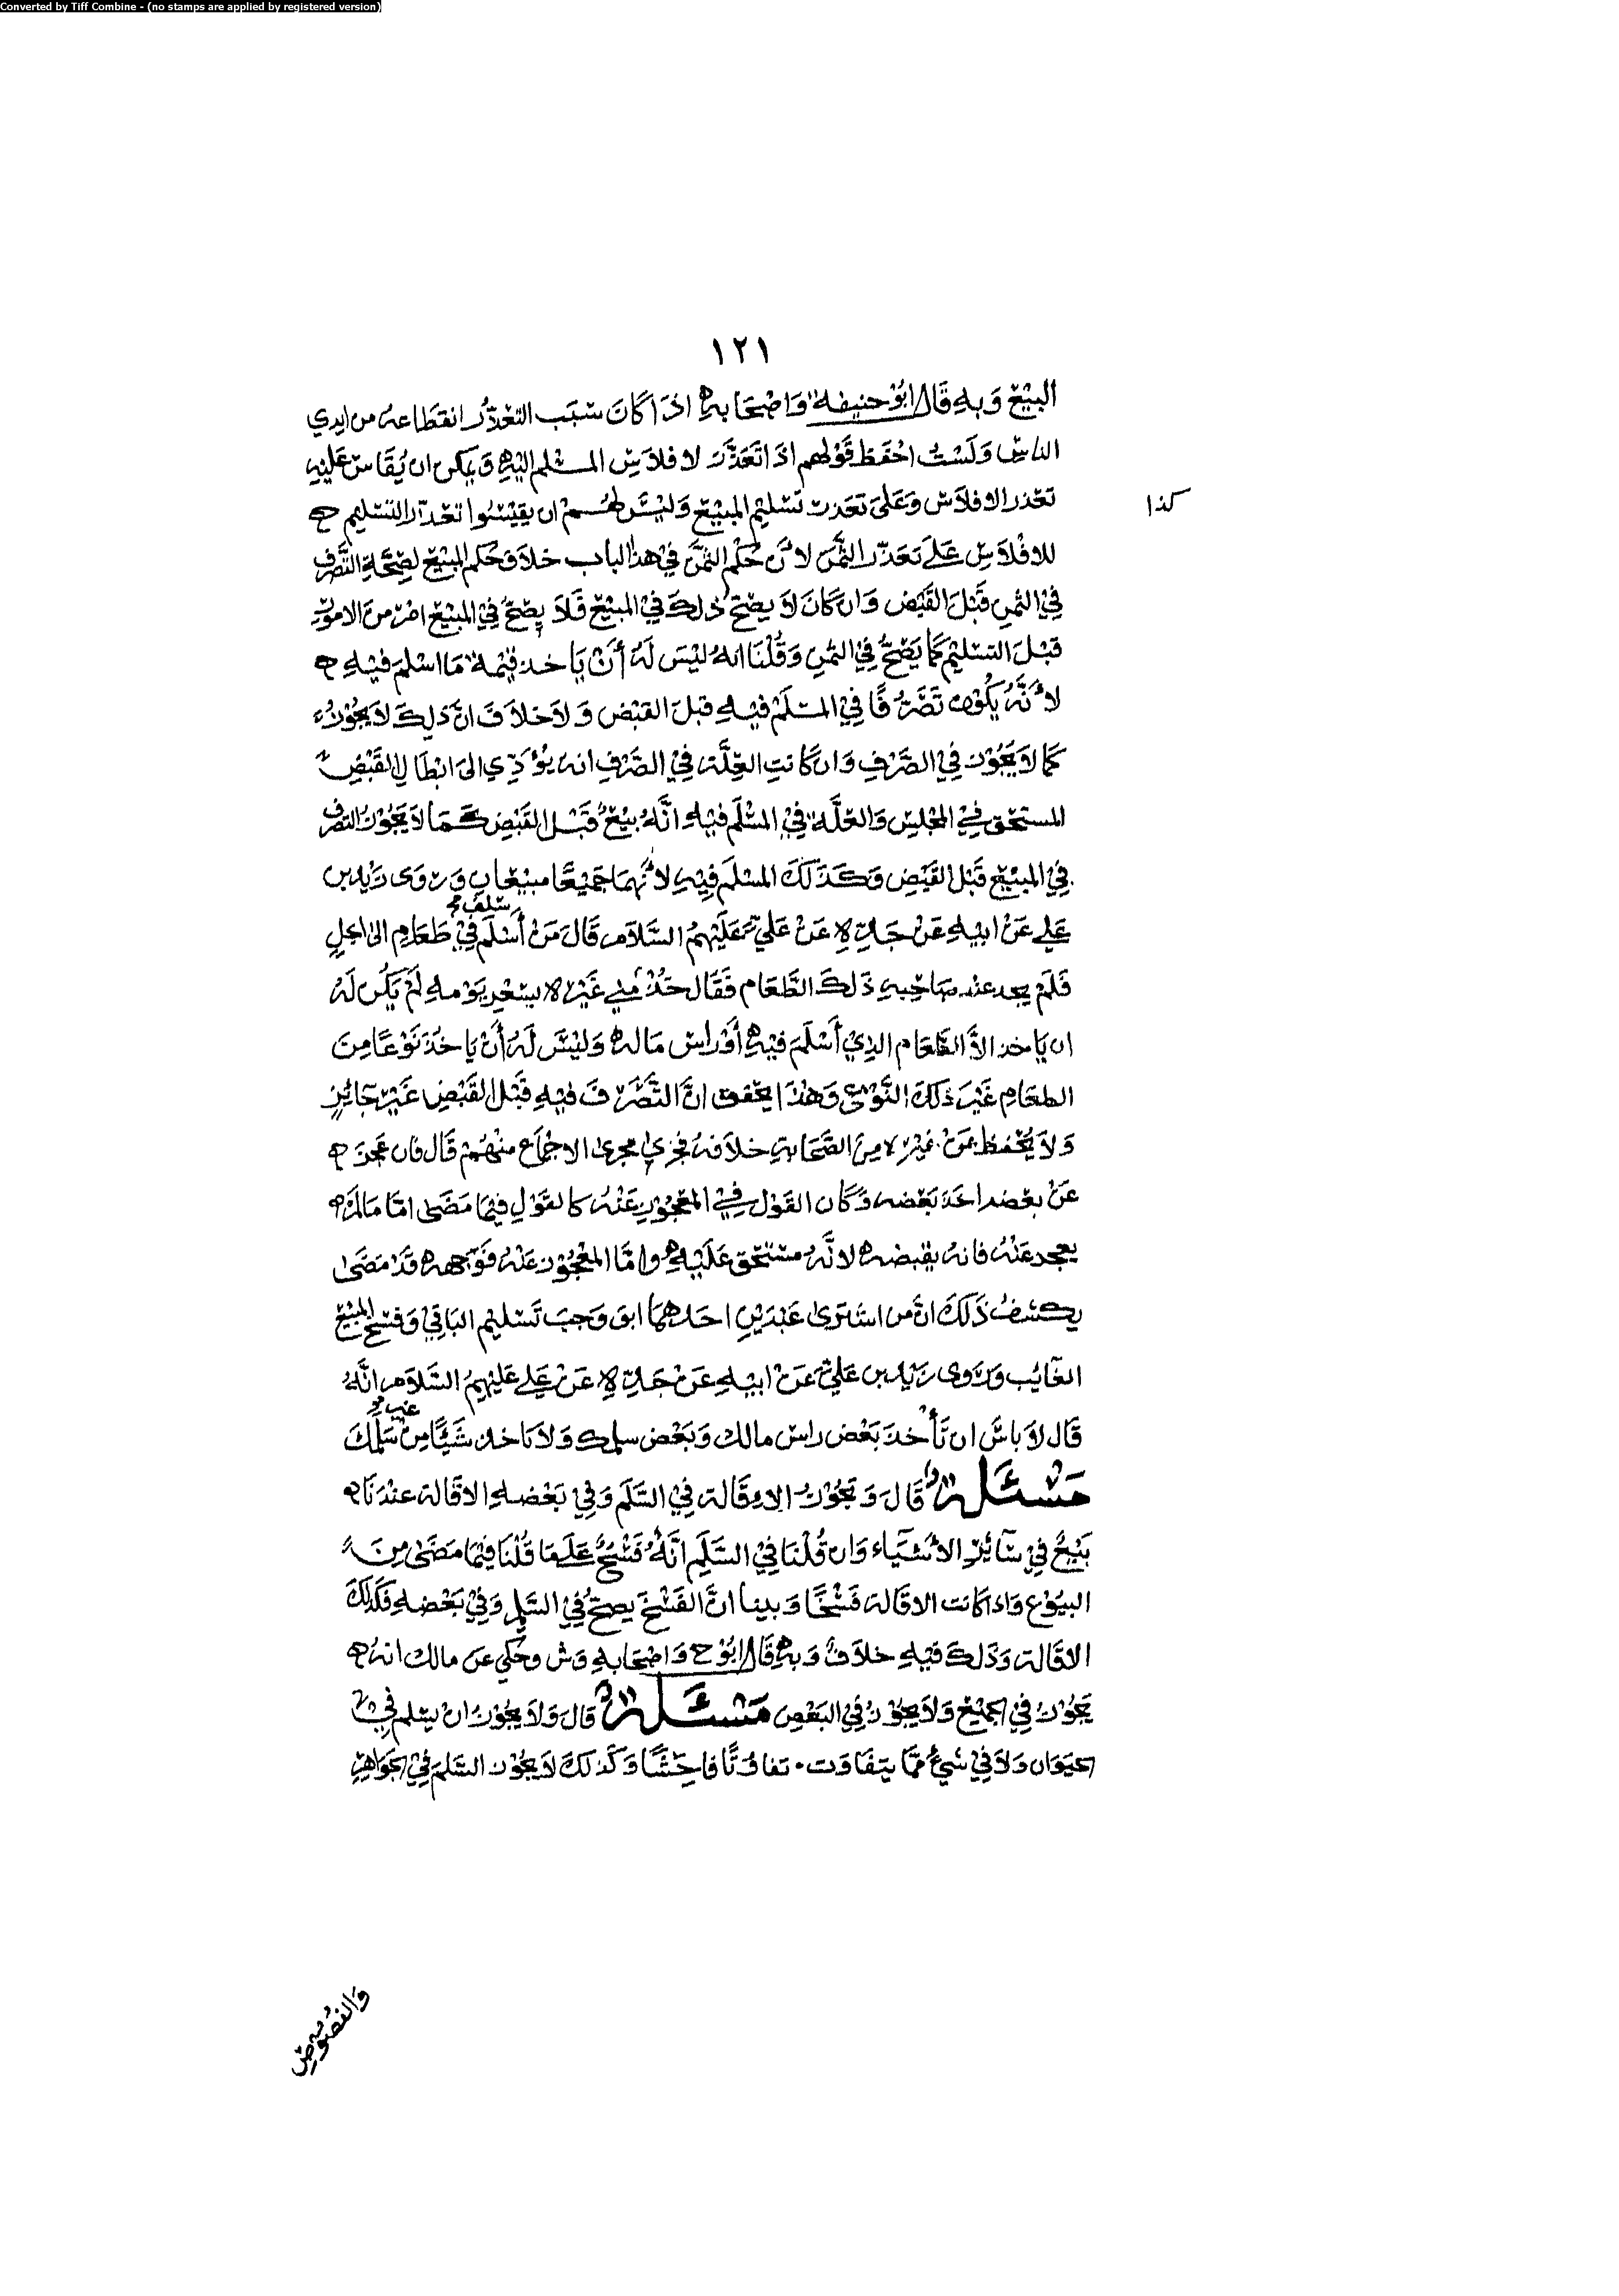 Converted by Tiff Combine - (no stamps are applied by registered version)
١٢١
البيع وبه قال ابو حنيفة واصحابه اذا كان سبب التعذر انقطاعه من ايدي
الناس ولست احفظ قولهم اذا تعذر لافلاس المسلم اليه ويمكن ان يقاس عليه
تعذر الافلاس وعلى تعذر تسليم المبيع وليس لهم ان يقيسوا تعذر التسليم
كذا
للافلاس على تعذر الثمن لأن حكم الثمن في هذا الباب خلاف حكم المبيع لصحة التصرف
في الثمن قبل القبض وان كان لا يصح ذلك في المبيع فلا يصح في المبيع امر من الامور
قبل التسليم كما يصح في الثمن وقلنا انه ليس له أن ياخذ قيمة ما اسلم فيه
لأنه يكون تصرفا في المسلم فيه قبل القبض ولا خلاف ان ذلك لا يجوز
كما لا يجوز في الصرف وان كانت العلة في الصرف انه يؤدي الى ابطال القبض
المستحق في المجلس والعلة في المسلم فيه انه بيع قبل القبض كما لا يجوز التصرف
في المبيع قبل القبض وكذلك المسلم فيه لأنهما جميعا مبيعان وروى زيد بن
علي عن ابيه عن جده عن علي عليهم السلام قال من أسلم في طعام الى اجل
سلف
فلم يجد عند صاحبه ذلك الطعام فقال خذ مني غيره بسعر يومه لم يكن له
ان ياخذ الا الطعام الذي أسلم فيه أو راس ماله وليس له أن ياخذ نوعا من
الطعام غير ذلك النوع وهذا يحقق ان التصرف فيه قبل القبض غير جائز
ولا يحفظ عن غيره من الصحابة خلافه فجرى مجرى الاجماع منهم قال فان عجز
عن بعضه اخذ بعضه وكان القول في المعجوز عنه كالقول فيما مضى اما ما لم
يعجز عنه فانه يقبضه لانه مستحق عليه واما المعجوز عنه فوجهه قد مضى
يكشف ذلك ان من اشترى عبدين احدهما ابق وجب تسليم الباقي وفسخ المبيع
الغائب وروى زيد بن علي عن ابيه عن جده عن علي عليهم السلام انه
قال لا باس ان تأخذ بعض راس مالك وبعض سلمك ولا تاخذ شيئا من سلمك
مسئلة قال وتجوز الاقالة في السلم وفي بعضه الاقالة عندنا
بيع في سائر الأشياء وان قلنا في السلم انه فسخ على ما قلنا فيما مضى من
البيوع واذا كانت الاقالة فسخا وبينا ان الفسخ يصح في السلم وفي بعضه فكذلك
الاقالة وذلك فيه خلاف وبه قال ابو ح واصحابه وش وحكي عن مالك انه
يجوز في الجميع ولا يجوز في البعض مسئلة قال ولا يجوز ان يسلم في
الحيوان ولا في شيء مما يتفاوت تفاوتا فاحشا وكذلك لا يجوز السلم في الجواهر
والفصوص